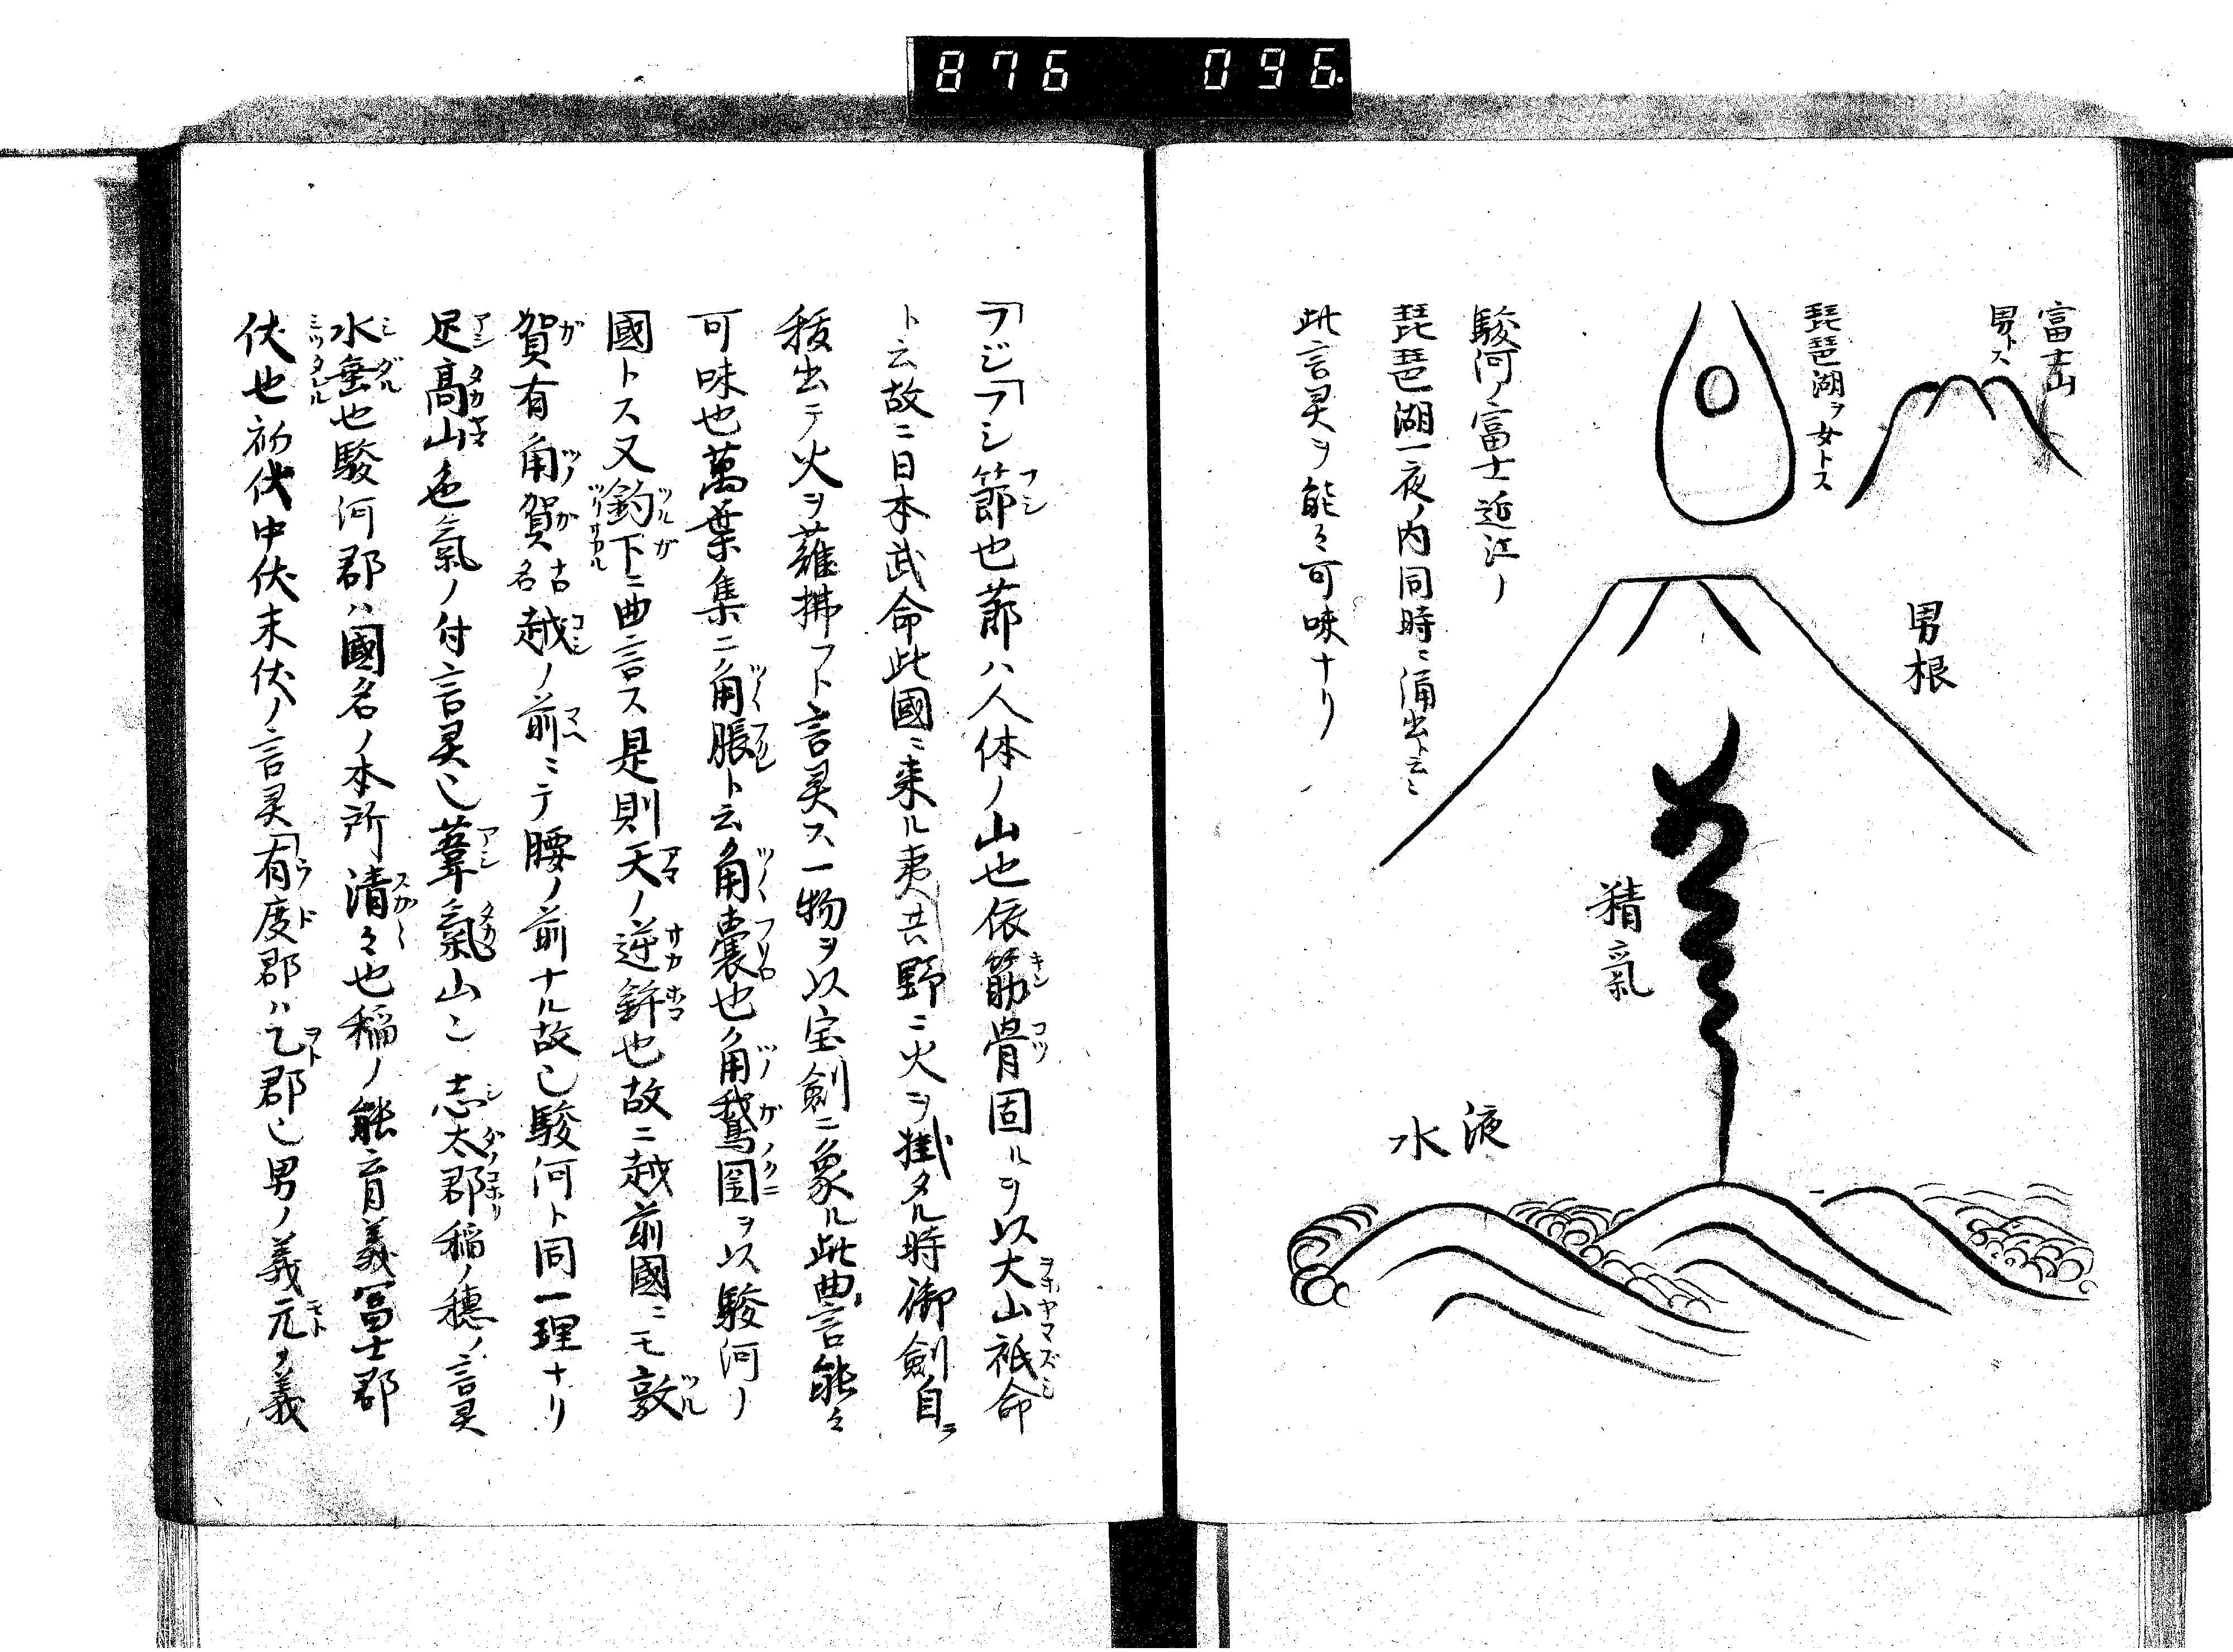 876 096
富士山
男トス
琵琶湖ヲ女トス
駿河ノ富士近江ノ
琵琶湖一夜ノ内同時ニ涌出ト云ニ
此言灵ヲ能々可味ナリ
男根
精氣
液
水
「フジ「フシ節也節ハ人体ノ山也依筋骨固ルヲ以大山祇命
ト云故ニ日本武命此國ニ来ル夷共野ニ火ヲ掛タル時御劍自ラ
抜出テ火ヲ薙拂フト言灵ス一物ヲ以宝劍ニ象ル此曲言能々
可味也萬葉集ニ角脹ト云角嚢也角鵞国ヲ以駿河ノ
國トス又釣下ニ曲言ス是則天ノ逆鉾也故ニ越前國ニモ敦
賀有角賀古名越ノ前ニテ腰ノ前ナル故也駿河ト同一理ナリ
足高山色氣ノ付言灵也葦氣山ニ志太郡稲ノ穂ノ言灵
水垂也駿河郡ハ國名ノ本所清々也稲ノ能育義冨士郡
伏也初伏中伏末伏ノ言灵「有度郡ハ乙郡也男ノ義元ノ義